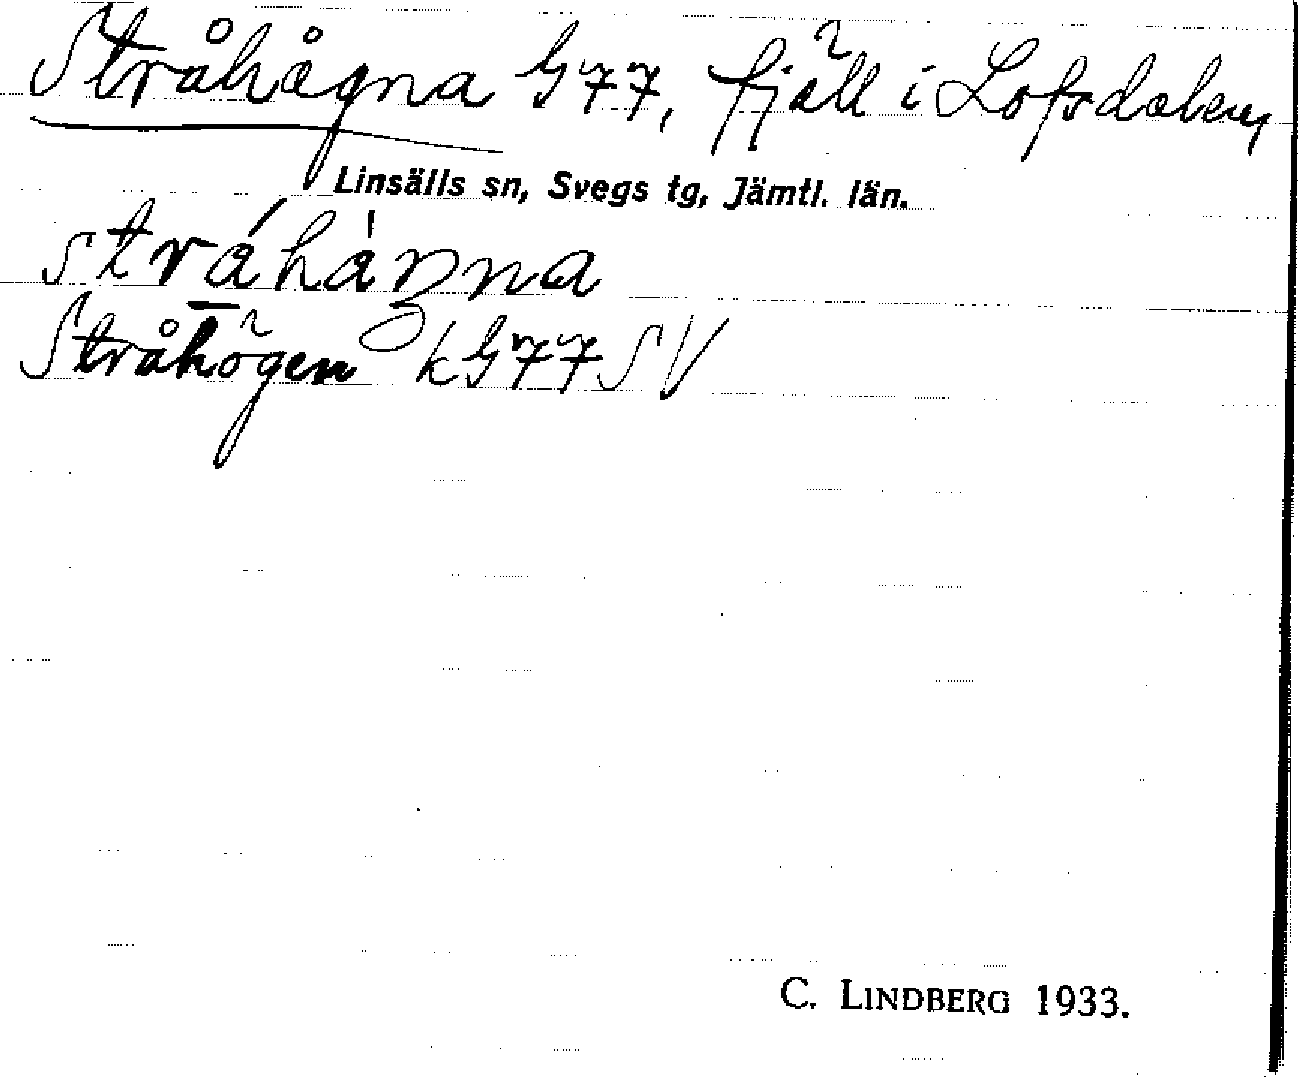 Stråhågna G 77, fjäll i Lofsdalen
Linsälls sn, Svegs tg, Jämtl. län.
Stråhögen k G 77 SV
C. LINDBERG 1933.